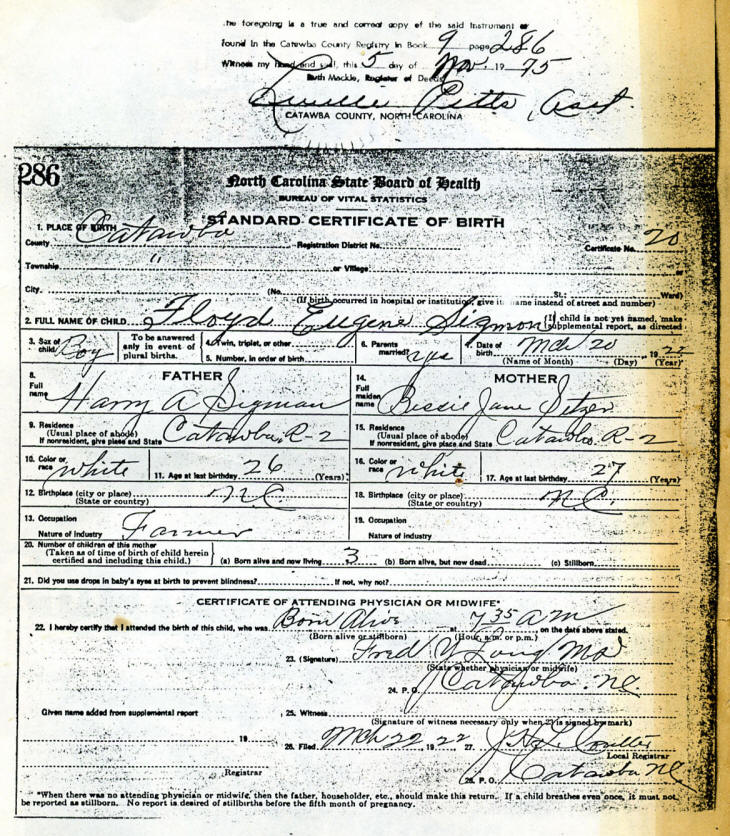 The foregoing is a true and correct copy of the said instrument as
found in the Catawba County Registry in Book 9 page 286
Witness my hand and seal, this 5 day of Nov. 1975
Ruth Mackie, Register of Deeds
Pitts, Asst.
CATAWBA COUNTY, NORTH CAROLINA
286
North Carolina State Board of Health
BUREAU OF VITAL STATISTICS
STANDARD CERTIFICATE OF BIRTH
1. PLACE OF BIRTH
County Catawba Registration District No. Certificate No. 20
Township " or Village or
City (No. St.; Ward)
(If birth occurred in hospital or institution, give its name instead of street and number)
2. FULL NAME OF CHILD Floyd Eugene Sigmon {If child is not yet named, make supplemental report, as directed
3. Sex of child Boy To be answered only in event of plural births. 4. Twin, triplet, or other 5. Number, in order of birth 6. Parents married? yes 7. Date of birth Mch 20 1922
(Name of Month) (Day) (Year)
8. FATHER 14. MOTHER
Full name Harry A Sigman Full maiden name Bessie Jane Setzer
9. Residence (Usual place of abode) If nonresident, give place and State Catawba, R-2 15. Residence (Usual place of abode) If nonresident, give place and State Catawba R-2
10. Color or race White 11. Age at last birthday 26 (Years) 16. Color or race White 17. Age at last birthday 27 (Years)
12. Birthplace (city or place) (State or country) NC 18. Birthplace (city or place) (State or country) NC.
13. Occupation Nature of Industry Farmer 19. Occupation Nature of Industry
20. Number of children of this mother
(Taken as of time of birth of child herein certified and including this child.) (a) Born alive and now living 3 (b) Born alive, but now dead (c) Stillborn
21. Did you use drops in baby's eyes at birth to prevent blindness? If not, why not?
CERTIFICATE OF ATTENDING PHYSICIAN OR MIDWIFE*
22. I hereby certify that I attended the birth of this child, who was Born Alive at 7 35 AM on the date above stated.
(Born alive or stillborn) (Hour, a.m. or p.m.)
23. (Signature) Fred Y Long MD
(State whether physician or midwife)
24. P. O. Catawba NC.
Given name added from supplemental report 25. Witness
(Signature of witness necessary only when 23 is signed by mark)
19 26. Filed Mch 22, 1922 27. Coulter
Local Registrar
Registrar 28. P. O. Catawba NC
*When there was no attending physician or midwife, then the father, householder, etc., should make this return. If a child breathes even once, it must not
be reported as stillborn. No report is desired of stillbirths before the fifth month of pregnancy.